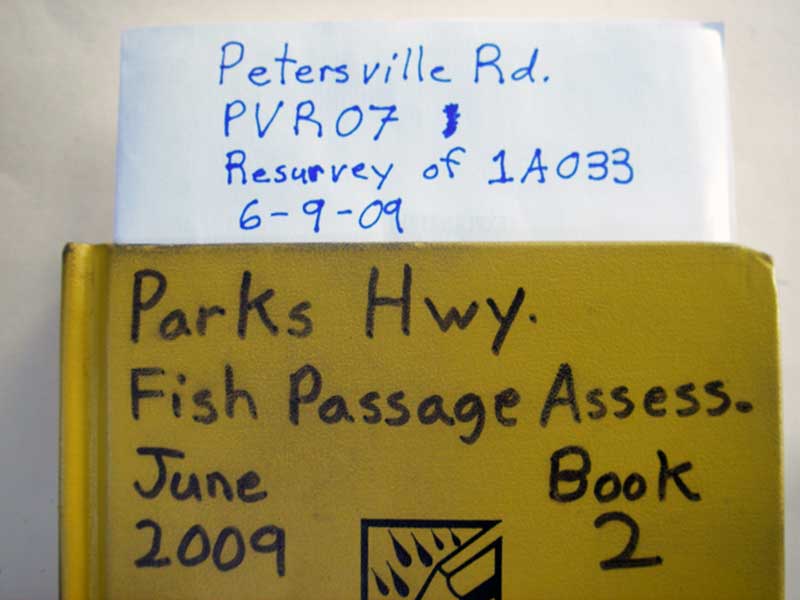 Petersville Rd.
PVR07
Resurvey of 1A033
6-9-09
Parks Hwy.
Fish Passage Assess.
June Book
2009 2